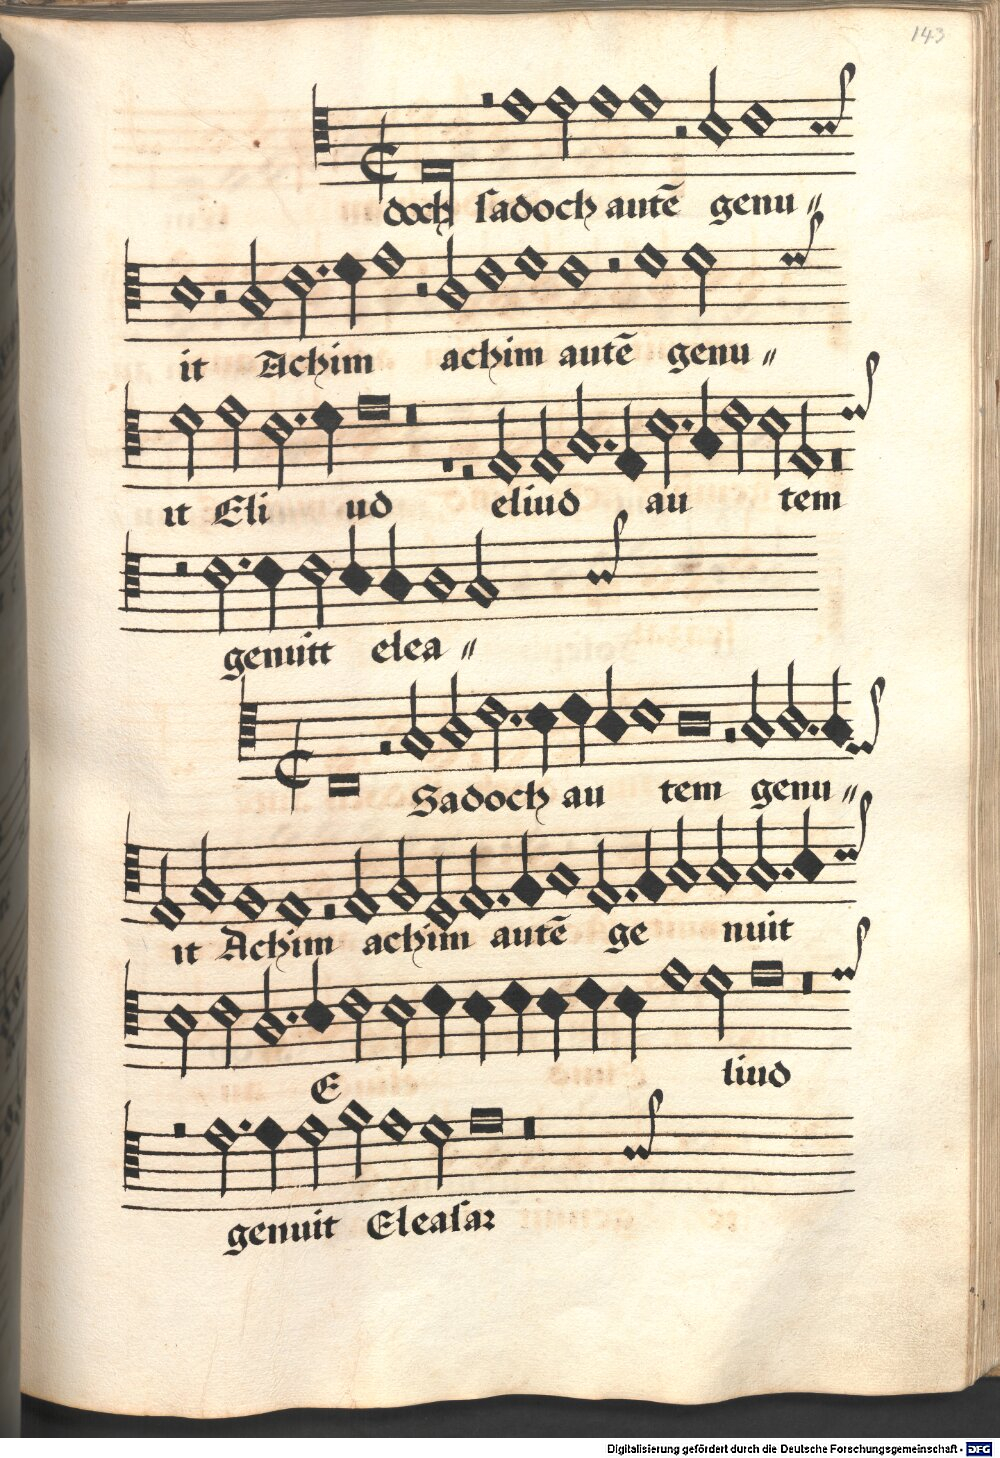 143
doch ſadoch autē genu〃
it Achim achim autē genu〃
it Eliud eliud autem
genuitt elea〃
Sadoch autem genu〃
it Achim achim autē genuit
Eliud
genuit Eleaſar
Digitalisierung gefördert durch die Deutsche Forschungsgemeinschaft - DFG